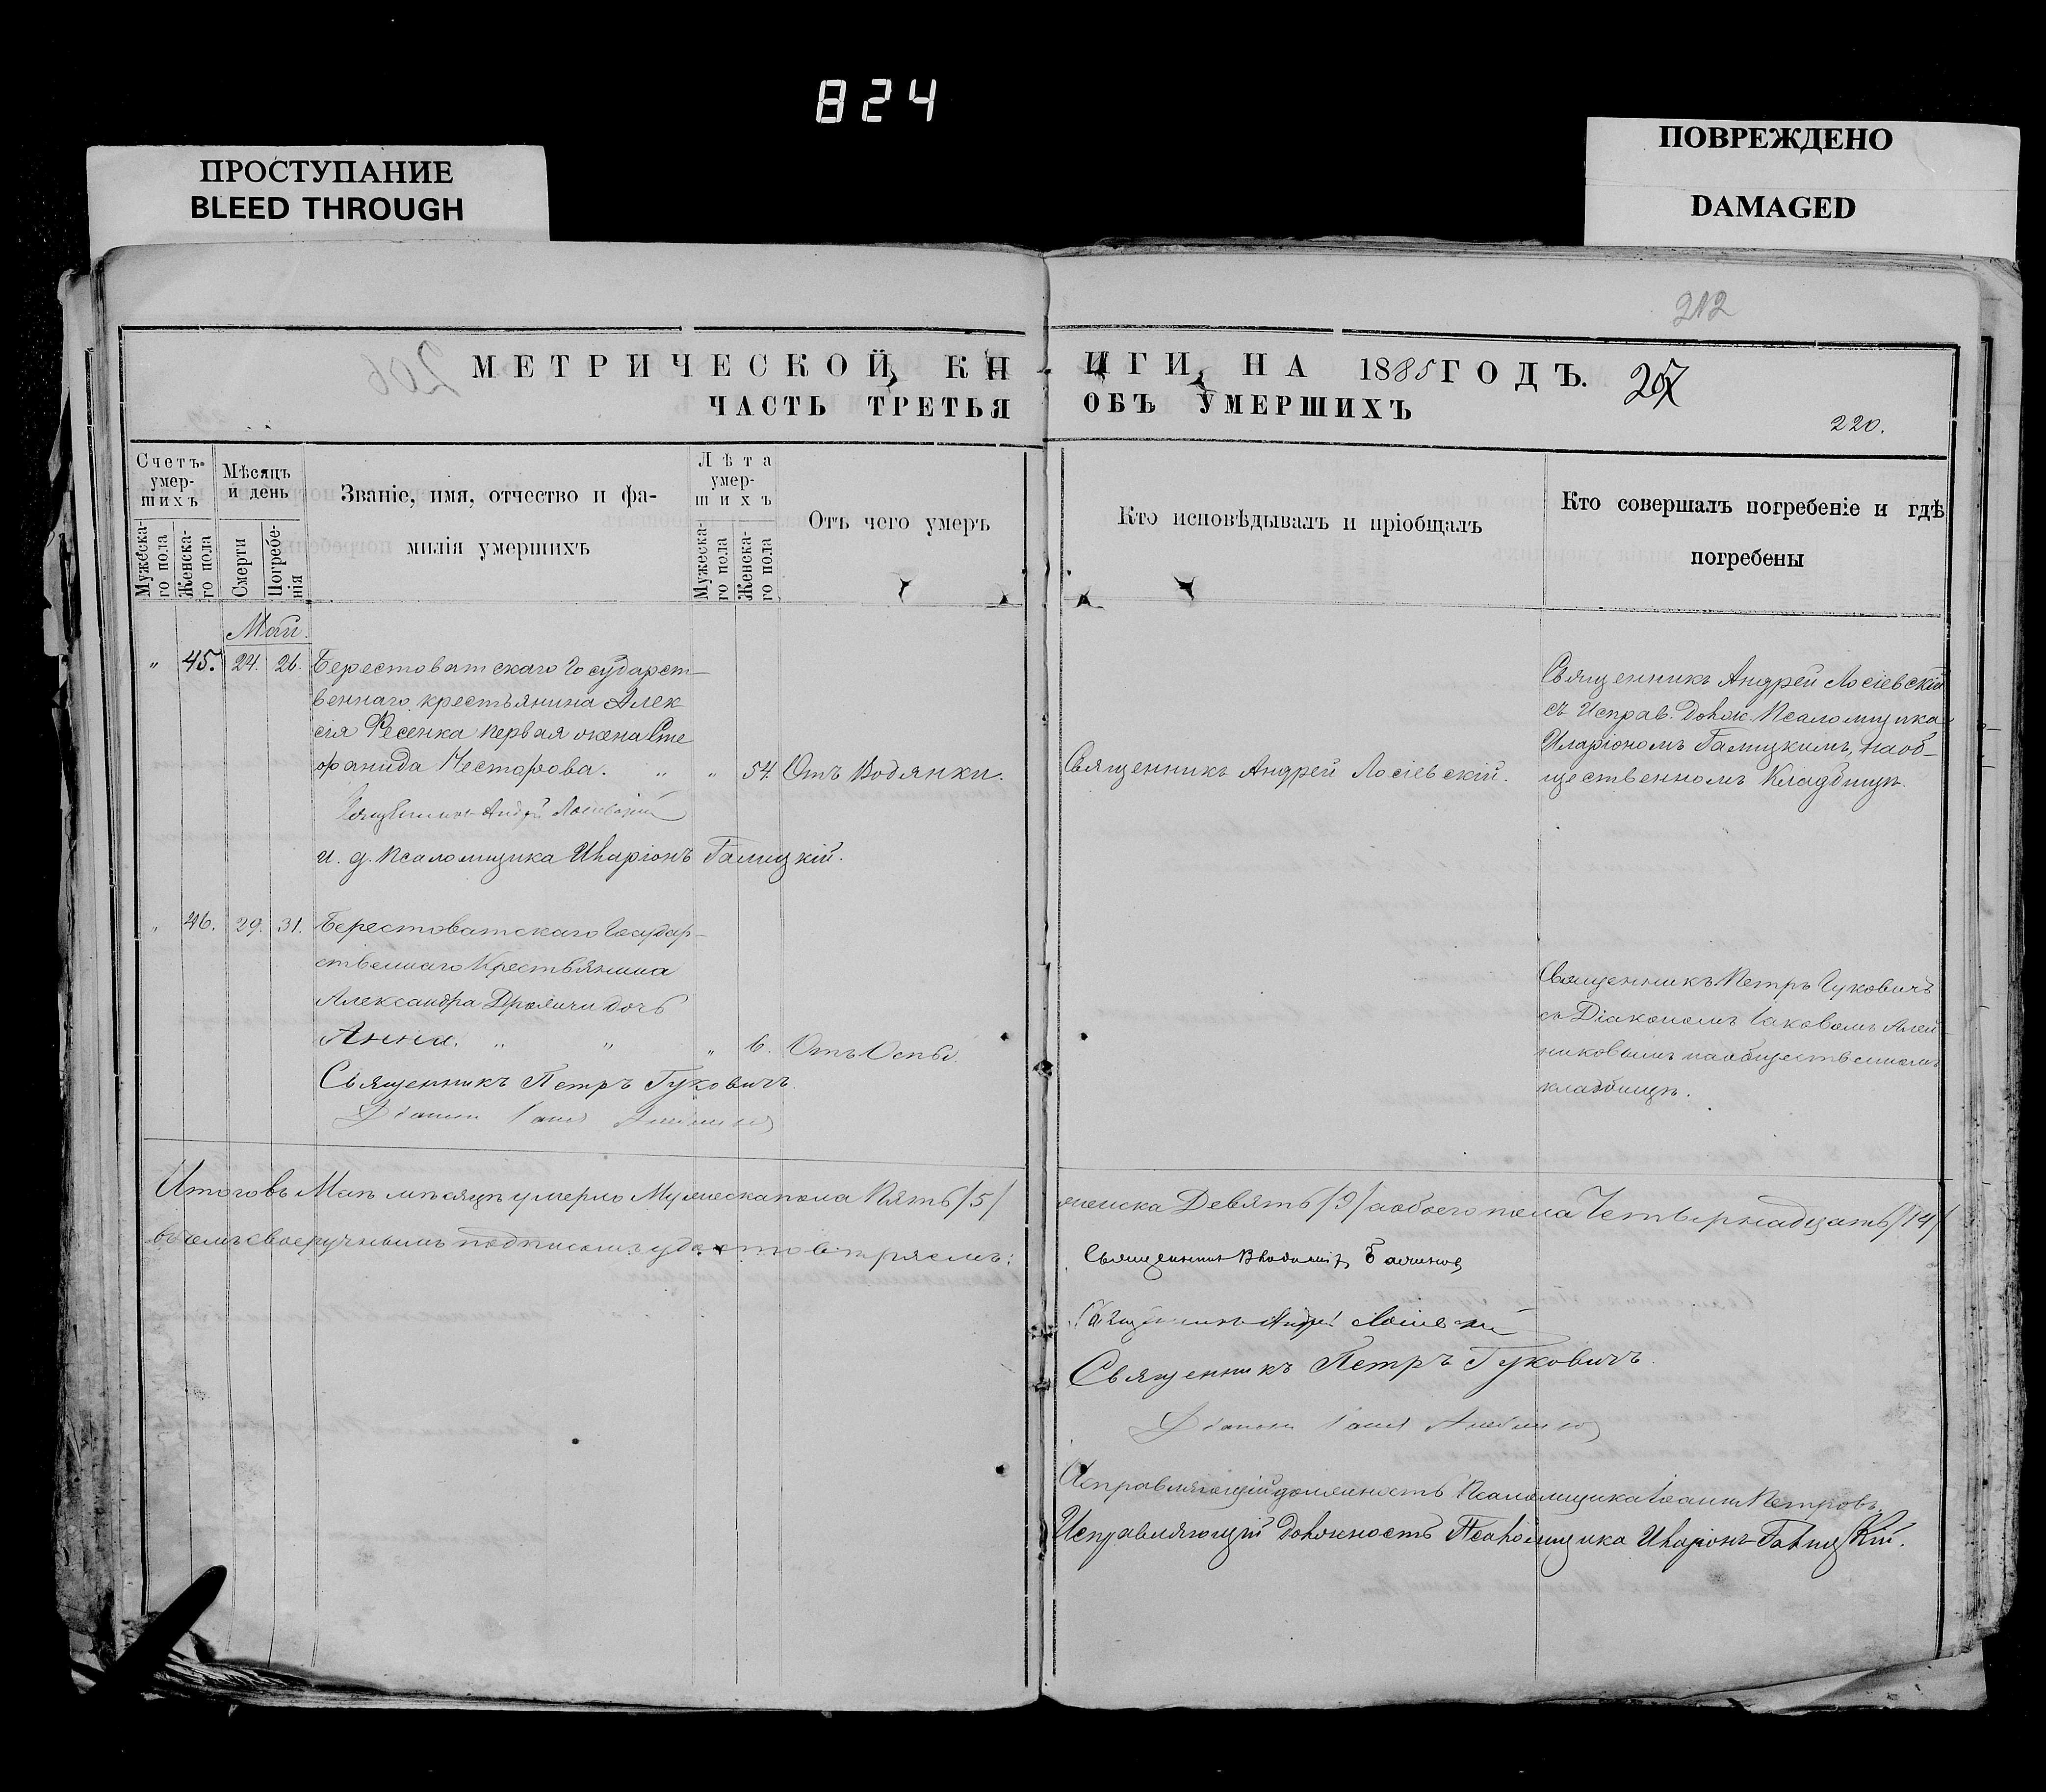 824
ПРОСТУПАНИЕ
BLEED THROUGH
ПОВРЕЖДЕНО
DAMAGED
212
МЕТРИЧЕСКОЙ КНИГИ НА 1885 ГОДЪ. 207
ЧАСТЬ ТРЕТЬЯ ОБЪ УМЕРШИХЪ
220.
206
Счетъ умер-
шихъ
Мужеска-
го пола
Женска-
го пола
Мѣсяцъ
и день
Смерти
Погребе-
нія
Званіе, имя, отчество и фа-
милія умершихъ
Лѣта
умер-
шихъ
Мужеска-
го пола
Женска-
го пола
Отъ чего умеръ
Кто исповѣдывалъ и пріобщалъ
Кто совершалъ погребеніе и гдѣ
погребены
Май.
" 45. 24. 26. Берестоватскаго Государст-
веннаго крестьянина Алек
сія Фесенка первая жена Сте
фанида Несторова. " " 54 Отъ Водянки.
Священникъ Андрей Лосіевскій
и. д. псаломщика Иларіонъ Галицкій.
Священникъ Андрей Лосіевскій.
Священникъ Андрей Лосіевскій
съ Исправ. долж. Псаломщика
Иларіономъ Галицкимъ, на об-
щественномъ кладбищѣ.
" 46. 29. 31. Берестоватскаго Государ-
ственнаго Крестьянина
Александра дочь
Анна. " " " 6. Отъ Оспы.
Священникъ Петръ Гуковичъ.
Діаконъ Іаковъ
Священникъ Петръ Гуковичъ
съ Діакономъ Іаковомъ Алей-
никовымъ на общественномъ
кладбищѣ.
Итого въ Маѣ мѣсяцѣ умерло Мужеска пола Пять /5/ женска Девять /9/ а обоего пола Четырнадцать /14/
въ чемъ своеручнымъ подписомъ удостовѣряемъ:
Священникъ Владиміръ
Священникъ Андрей Лосіевскій
Священникъ Петръ Гуковичъ.
Діаконъ Іаковъ
Исправляющій должность Псаломщика Іоаннъ Петровъ.
Исправляющій должность Псаломщика Иларіонъ Галицкій.